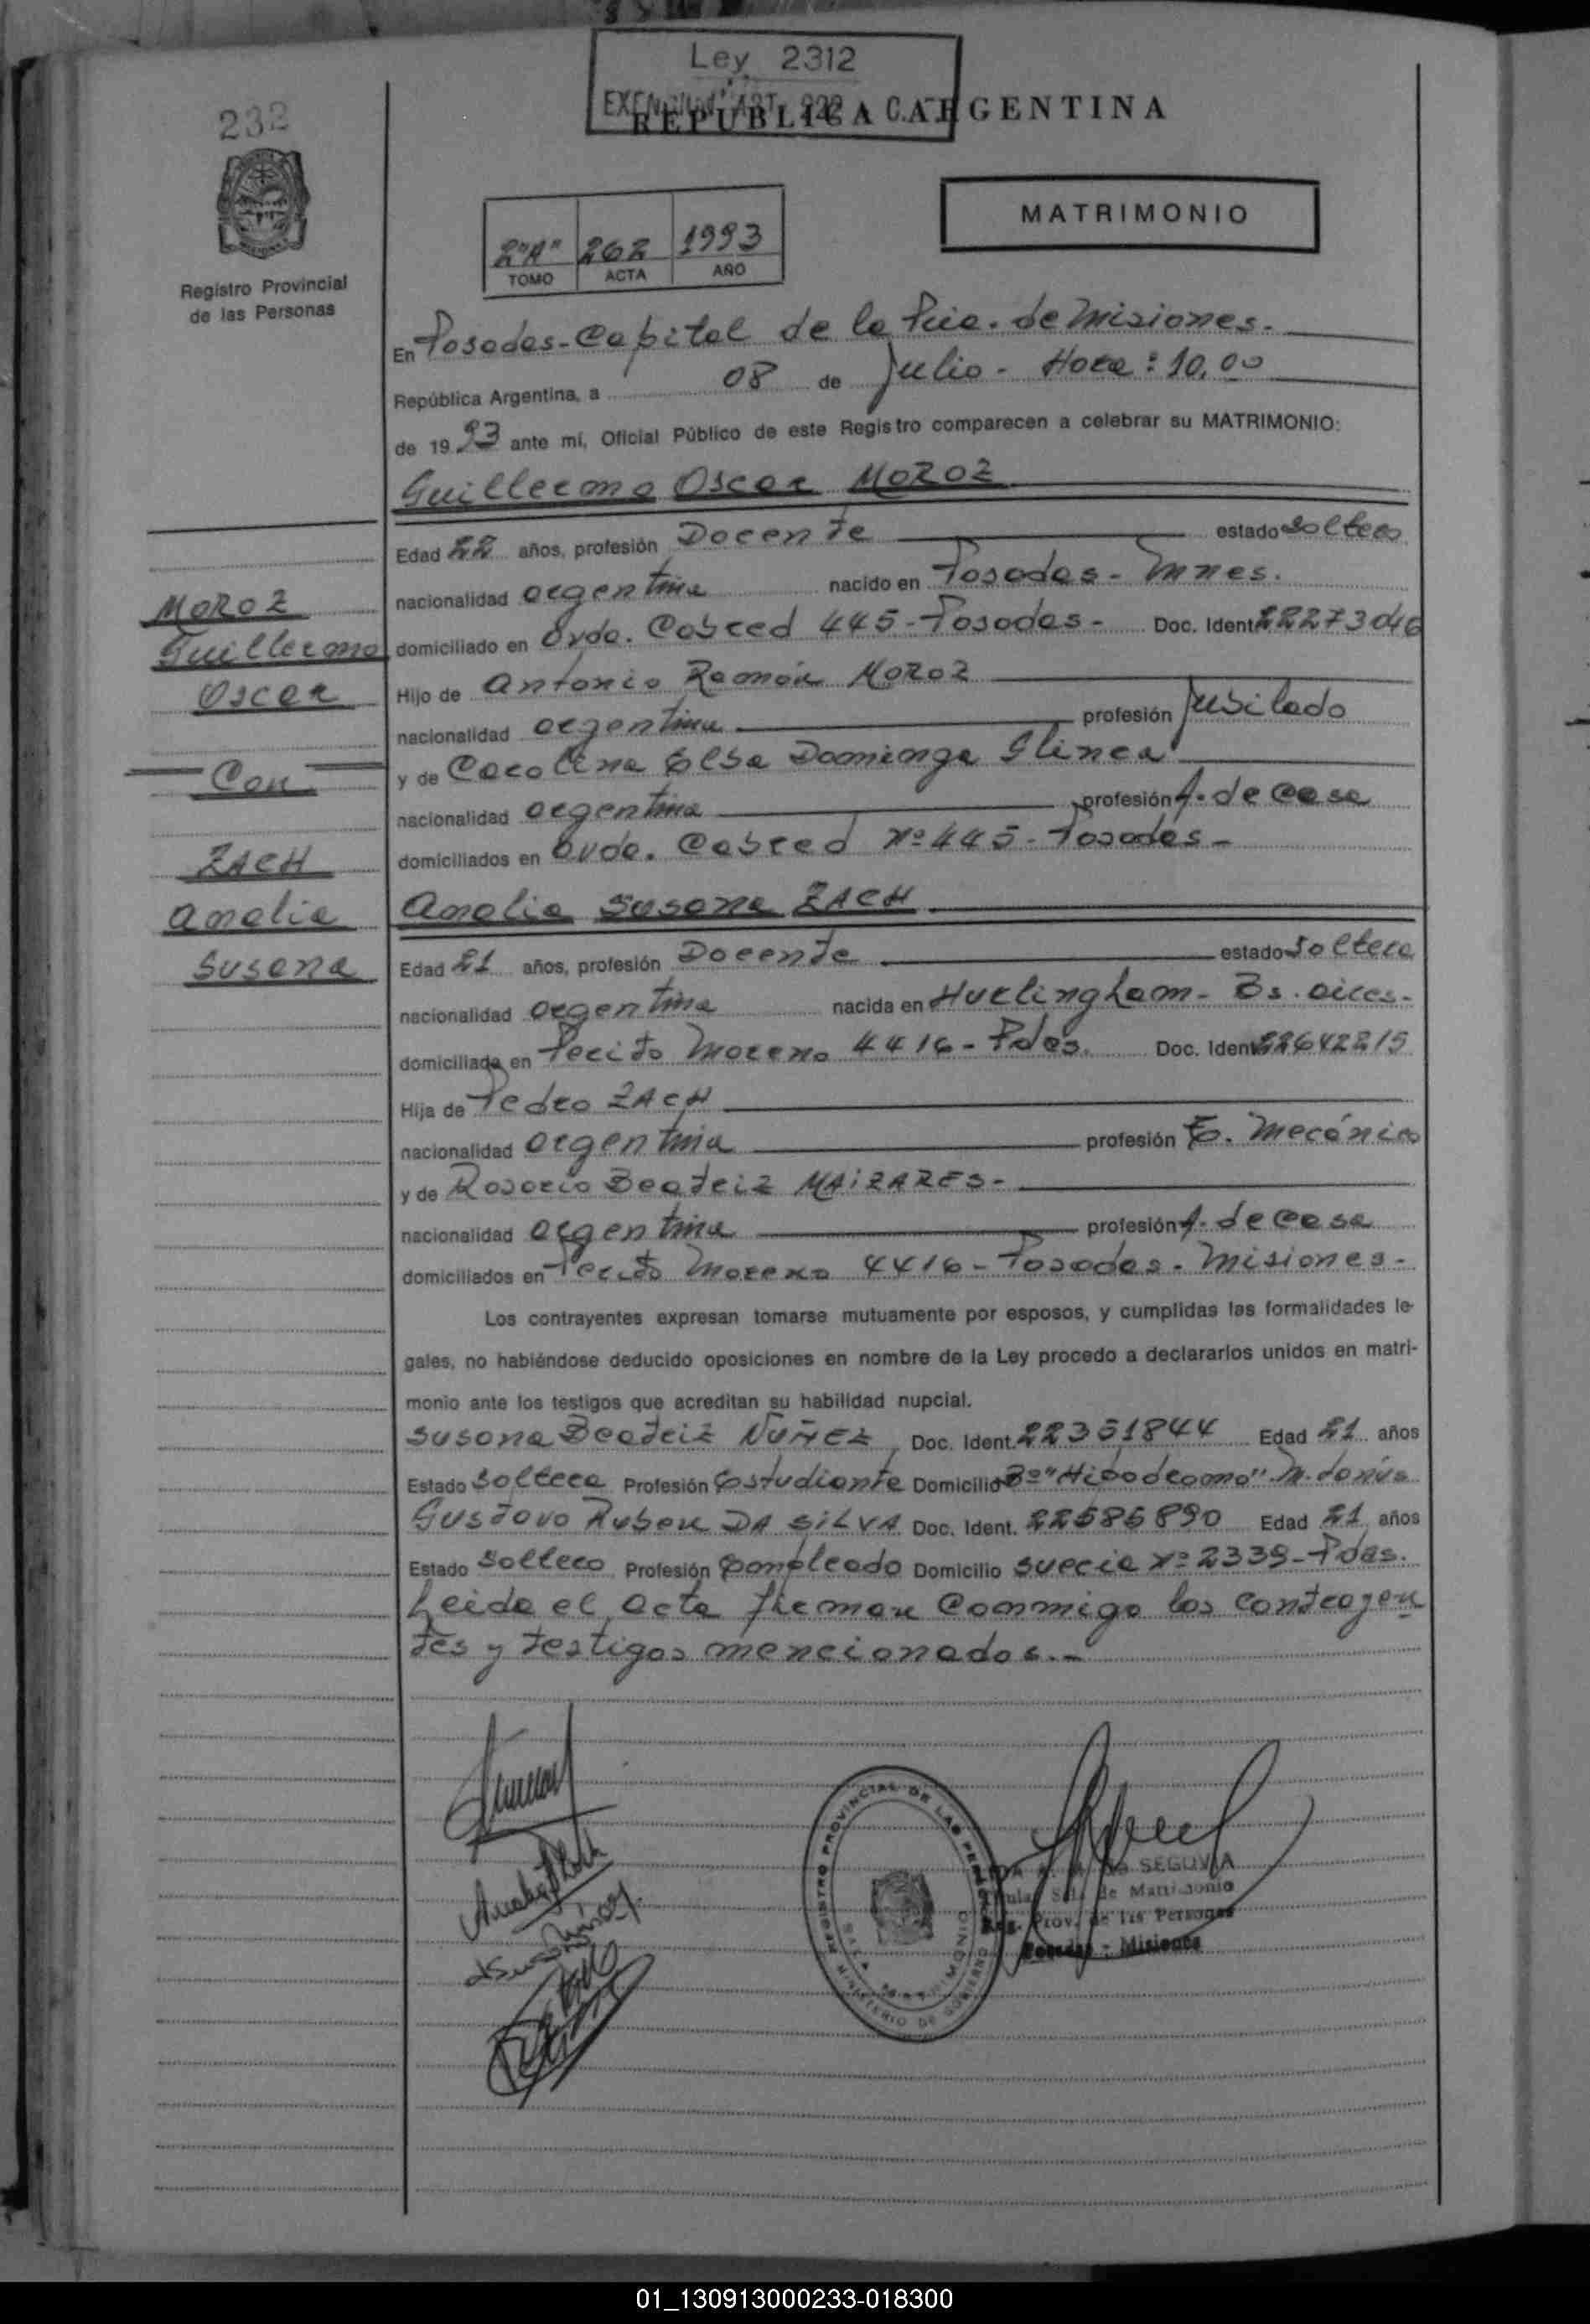 Ley 2312
232
REPUBLICA ARGENTINA
MATRIMONIO
2"A" 262 1993
TOMO ACTA AÑO
Registro Provincial
de las Personas
En Posadas-Capital de la Pcia. de Misiones.
República Argentina, a 08 de Julio - Hora: 10,00
de 1993 ante mí, Oficial Público de este Registro comparecen a celebrar su MATRIMONIO:
Guillermo Oscar MOROZ
Edad 22 años, profesión Docente estado soltero
nacionalidad argentina nacido en Posadas - Mnes.
domiciliado en Avda. Cabred 445 - Posadas - Doc. Ident. 22273046
Hijo de Antonio Ramón MOROZ
nacionalidad argentina profesión Jubilado
y de Carolina Elba Dominga Glinca
nacionalidad argentina profesión A. de casa
domiciliados en Avda. Cabred Nº 445 - Posadas -
MOROZ
Guillermo
Oscar
Con
ZACH
Analia
Susana
Analia Susana ZACH
Edad 21 años, profesión Docente estado soltera
nacionalidad argentina nacida en Hurlingham - Bs. aires -
domiciliada en Perito Moreno 4416 - Pdas. Doc. Ident. 22642215
Hija de Pedro ZACH
nacionalidad argentina profesión Mecánico
y de Rosario Beatriz MAIZARES -
nacionalidad argentina profesión A. de casa
domiciliados en Perito Moreno 4416 - Posadas - Misiones -
Los contrayentes expresan tomarse mutuamente por esposos, y cumplidas las formalidades le-
gales, no habiéndose deducido oposiciones en nombre de la Ley procedo a declararlos unidos en matri-
monio ante los testigos que acreditan su habilidad nupcial.
Susana Beatriz NUÑEZ Doc. Ident. 22351844 Edad 21 años
Estado soltera Profesión Estudiante Domicilio Bº "Hipodromo"
Gustavo Ruben DA SILVA Doc. Ident. 22585890 Edad 21 años
Estado soltero Profesión Empleado Domicilio suecia Nº 2339 - Pdas.
Leida el acta firman conmigo los contrayen
tes y testigos mencionados.-
REGISTRO PROVINCIAL DE LAS PERSONAS
MINISTERIO DE GOBIERNO
SEGOVIA
de Matrimonio
Reg. Prov. de las Personas
Posadas - Misiones
01_130913000233-018300